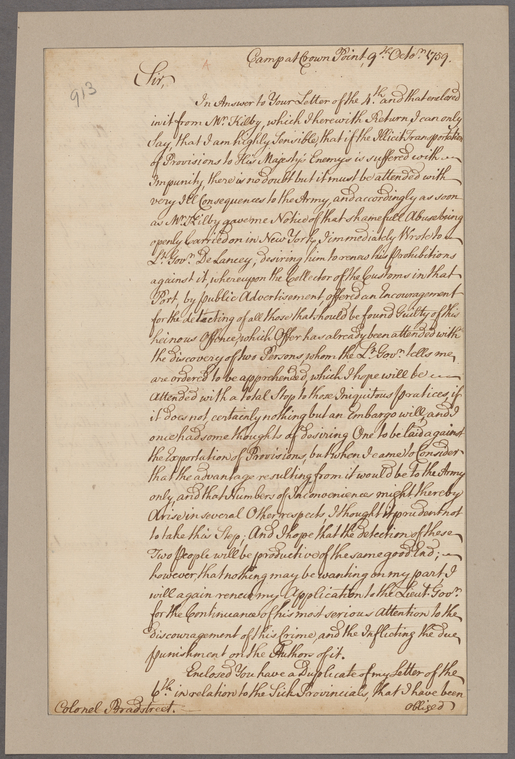 Camp at Crown Point, 9th. Octor. 1759.
913
Sir,
In Answer to Your Letter of the 4th. and that enclosed
in it from Mr. Kilby, which I herewith Return, I can only
Say, that I am highly Sensible, that if the Illicit Transportation
of Provisions to His Majesty's Enemys is suffered with
Impunity, there is no doubt but it must be attended with
very Ill Consequences to the Army, and accordingly as soon
as Mr. Kilby gave me Notice of that shamefull Abuse being
openly Carried on in New York, I immediately Wrote to
Lt. Govr. De Lancey, desiring him to renew his Prohibitions
against it, whereupon the Collector of the Customs in that
Port, by public Advertisement offered an Encouragement
for the detecting of all those that should be found Guilty of this
heinous Offence, which Offer has already been attended with
the discovery of two Persons, whom the Lt. Govr. tells me,
are ordered to be apprehended, which I hope will be
Attended with a total Stop to those Iniquitous practices, if
it does not certainly nothing but an Embargo will, and I
once had some thoughts of desiring One to be laid against
the Exportation of Provisions, but when I came to Consider
that the advantage resulting from it would be to the Army
only, and that Numbers of Inconveniences might thereby
Arise in several Other respects, I thought it prudent not
to take this Step; And I hope that the detection of these
Two people will be productive of the same good End;
however, that nothing may be wanting on my part, I
will again renew my Application to the Lieut. Govr.
for the Continuance of his most serious Attention to the
discouragement of this Crime, and the Inflicting the due
punishment on the Authors of it.
Enclosed You have a Duplicate of my Letter of the
6th. in relation to the Sick Provincials, that I have been
Colonel Bradstreet. obliged